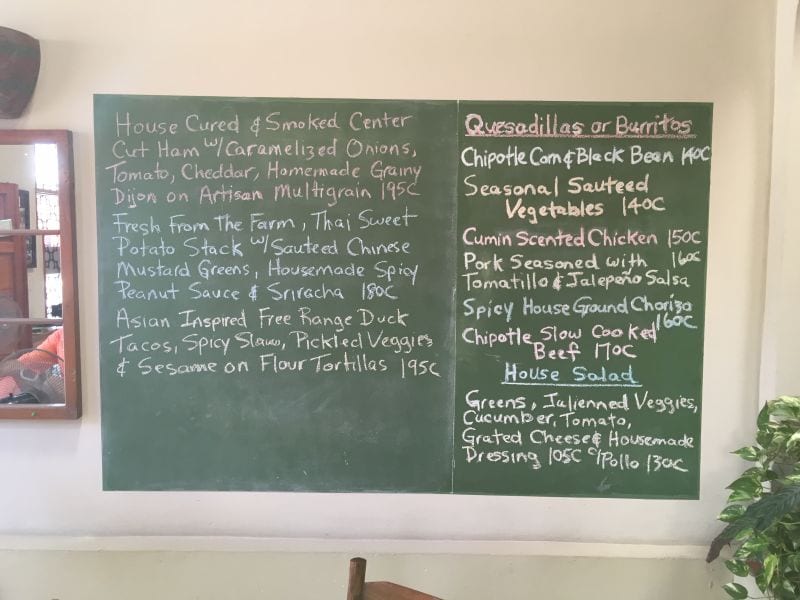 House Cured & Smoked Center
Cut Ham w/Caramelized Onions,
Tomato, Cheddar, Homemade Grainy
Dijon on Artisan Multigrain 195C
Fresh From The Farm, Thai Sweet
Potato Stack w/Sauteed Chinese
Mustard Greens, Housemade Spicy
Peanut Sauce & Sriracha 180C
Asian Inspired Free Range Duck
Tacos, Spicy Slaw, Pickled Veggies
& Sesame on Flour Tortillas 195C
Quesadillas or Burritos
Chipotle Corn & Black Bean 140C
Seasonal Sauteed
Vegetables 140C
Cumin Scented Chicken 150C
Pork Seasoned with 160C
Tomatillo & Jalepeño Salsa
Spicy House Ground Chorizo
160C
Chipotle Slow Cooked
Beef 170C
House Salad
Greens, Julienned Veggies,
Cucumber, Tomato,
Grated Cheese & Housemade
Dressing 105C c/Pollo 130C